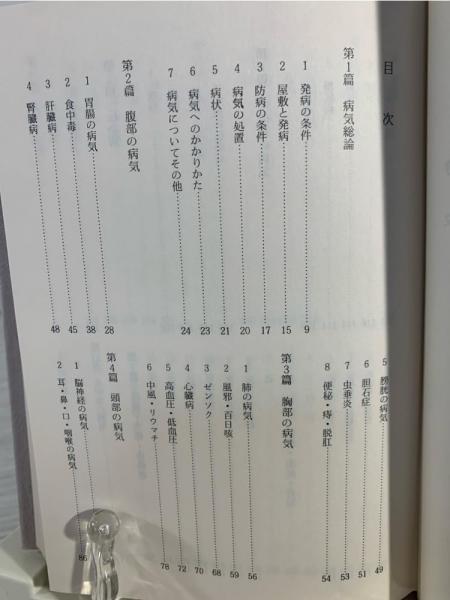 目次
第1篇 病気総論
1 発病の条件……9
2 屋敷と発病……15
3 防病の条件……17
4 病気の処置……20
5 病状……21
6 病気へのかかりかた……23
7 病気についてその他……24
第2篇 腹部の病気
1 胃腸の病気……28
2 食中毒……38
3 肝臓病……45
4 腎臓病……48
5 膀胱の病気……49
6 胆石症……51
7 虫垂炎……53
8 便秘・痔・脱肛……54
第3篇 胸部の病気
1 肺の病気……56
2 風邪・百日咳……59
3 ゼンソク……68
4 心臓病……70
5 高血圧・低血圧……72
6 中風・リウマチ……78
第4篇 頭部の病気
1 脳神経の病気……86
2 耳・鼻・口・咽喉の病気……